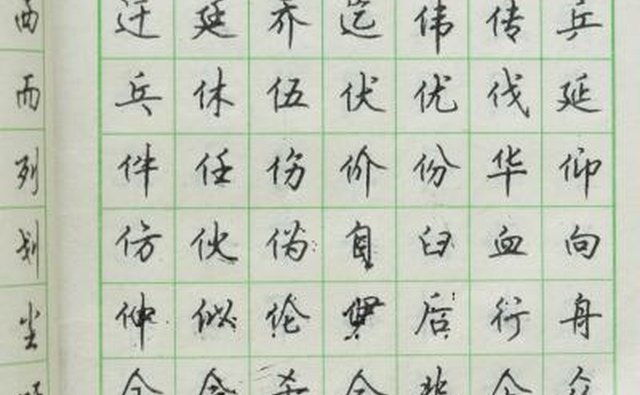 而
列
划
尘
迁延乔迄伟传乒
乓休伍伏优伐延
件任伤价份华仰
仿伙伪自臼血向
伸似伦后行舟